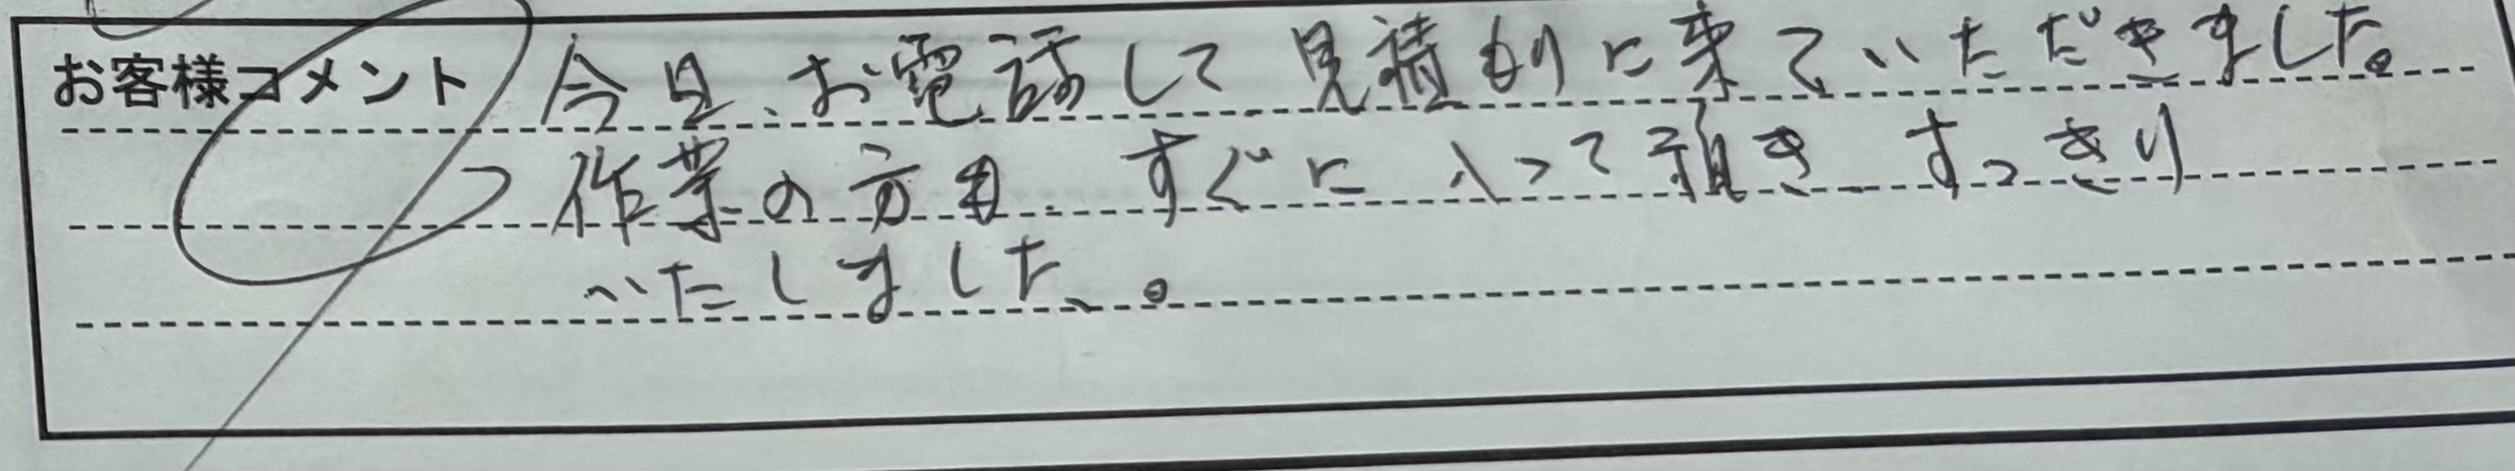 お客様コメント 今日、お電話して見積もりに来ていただきました。
作業の方も、すぐに入って頂き、すっきり
いたしました。